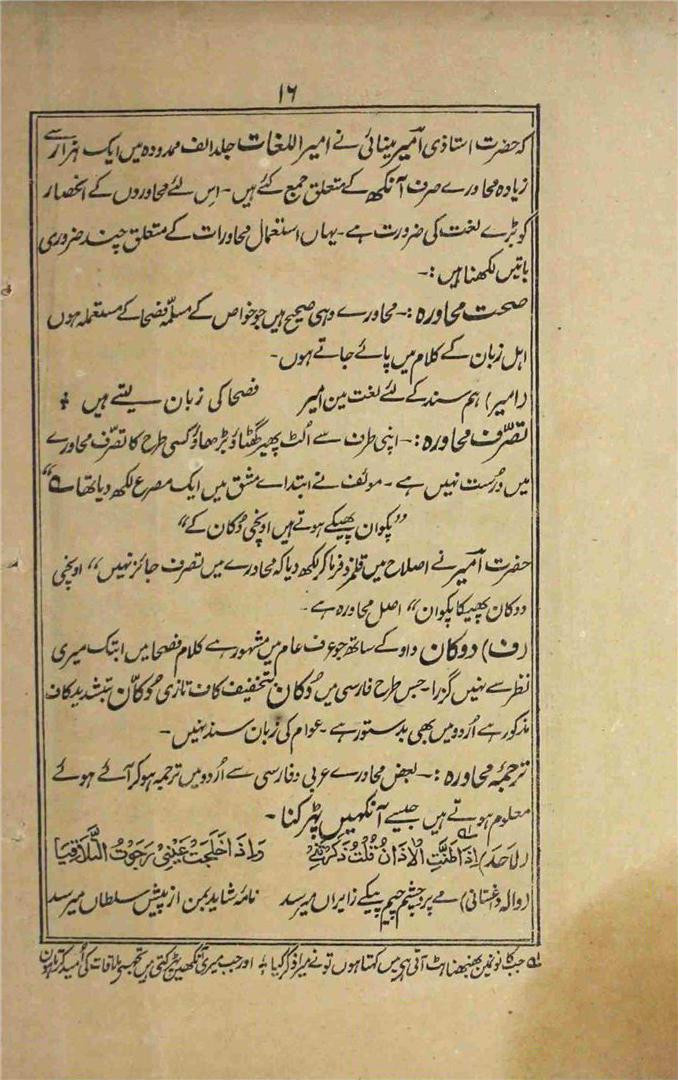 ۱۶
کہ حضرت استاذی امیر مینائی نے امیر اللغات جلد الف ممدودہ میں ایک ہزار سے
زیادہ محاورے صرف آنکھ کے متعلق جمع کئے ہیں۔ اس لئے محاوروں کے انحصار
کو بڑے لغت کی ضرورت ہے۔ یہاں استعمال محاورات کے متعلق چند ضروری
باتیں لکھنا ہیں:۔
صحت محاورہ:۔ محاورے وہی صحیح ہیں جو خواص کے مسلّمہ فصحا کے مستعملہ ہوں
اہل زبان کے کلام میں پائے جاتے ہوں۔
(امیر) ہم سند کے لئے لغت میں امیر فصحا کی زبان لیتے ہیں
تصرّف محاورہ:۔ اپنی طرف سے الٹ پھیر گھٹاؤ بڑھاؤ کسی طرح کا تصرف محاورے
میں درست نہیں ہے۔ مولف نے ابتداے مشق میں ایک مصرع لکھ دیا تھا
”پکوان پھیکے ہوتے ہیں اونچی دُکان کے“
حضرت امیر نے اصلاح میں قلمزد فرما کر لکھ دیا کہ محاورے میں تصرف جائز نہیں ”اونچی
دوکان پھیکا پکوان“ اصل محاورہ ہے۔
(ف) دوکان واو کے ساتھ جو عرف عام میں مشہور ہے کلام فصحا میں ابتک میری
نظر سے نہیں گزرا۔ جس طرح فارسی میں دُکان بتخفیف کاف تازی دُکّان بتشدید کاف
مذکور ہے اُردو میں بھی بدستور ہے۔ عوام کی زبان سند نہیں۔
ترجمۂ محاورہ:۔ بعض محاورے عربی و فارسی سے اُردو میں ترجمہ ہو کر آئے ہوئے
معلوم ہوتے ہیں جیسے آنکھیں پٹر کنا۔
(لاحد) اِذَا طَنَّتِ الْاٰذَانُ قُلْتُ ذَکَرْتَنِی وَاِذَا خَلَجَتْ عَیْنِی رَجَوْتُ التَّلَاقِیَا
(والہ داغستانی) مے پرد چشم پیکے زایراں میرسد نامۂ شاید بمن از پیش سلطاں میرسد
لہ جب کانوں میں بھنبھناہٹ آتی ہے میں کہتا ہوں تو نے میرا ذکر کیا اور جب میری آنکھیں پھڑکتی ہیں تجھسے ملاقات کی امید کرتا ہوں